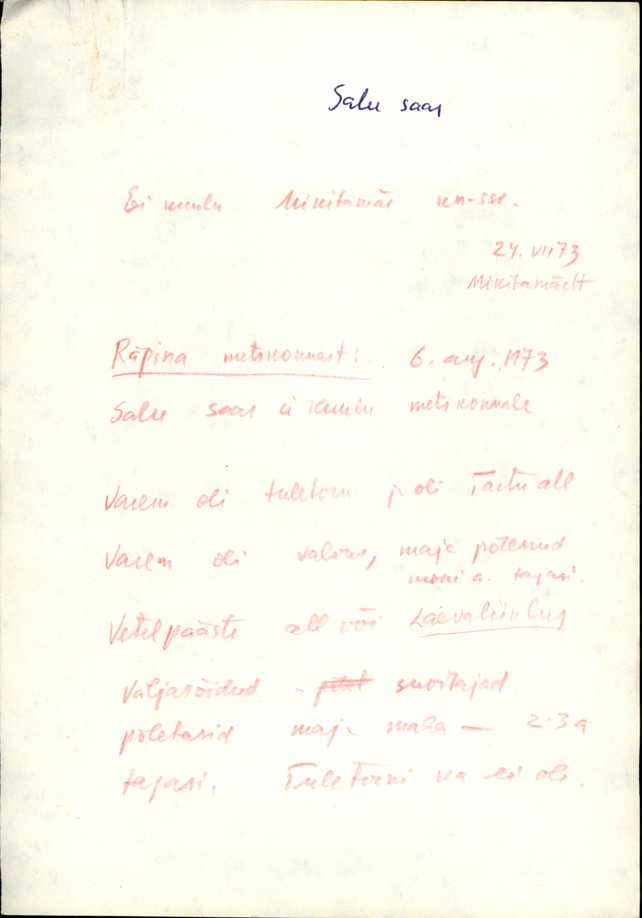 Salu saar
Ei kuulu Mikitamäe
24. VII 73
Mikitamäelt
Räpina metskonnast: 6. aug. 1973
Salu saar ei kuulu metskonnale
Varem oli tuletorn ja oli Tartu all
Varem oli valvur, maja põlenud
mõni a. tagasi.
Vetelpääste all või Laevaliiklus
Väljasõidud - suvitajad
põletasid maja maha — 2-3 a
tagasi. Tuletorni ka ei ole.